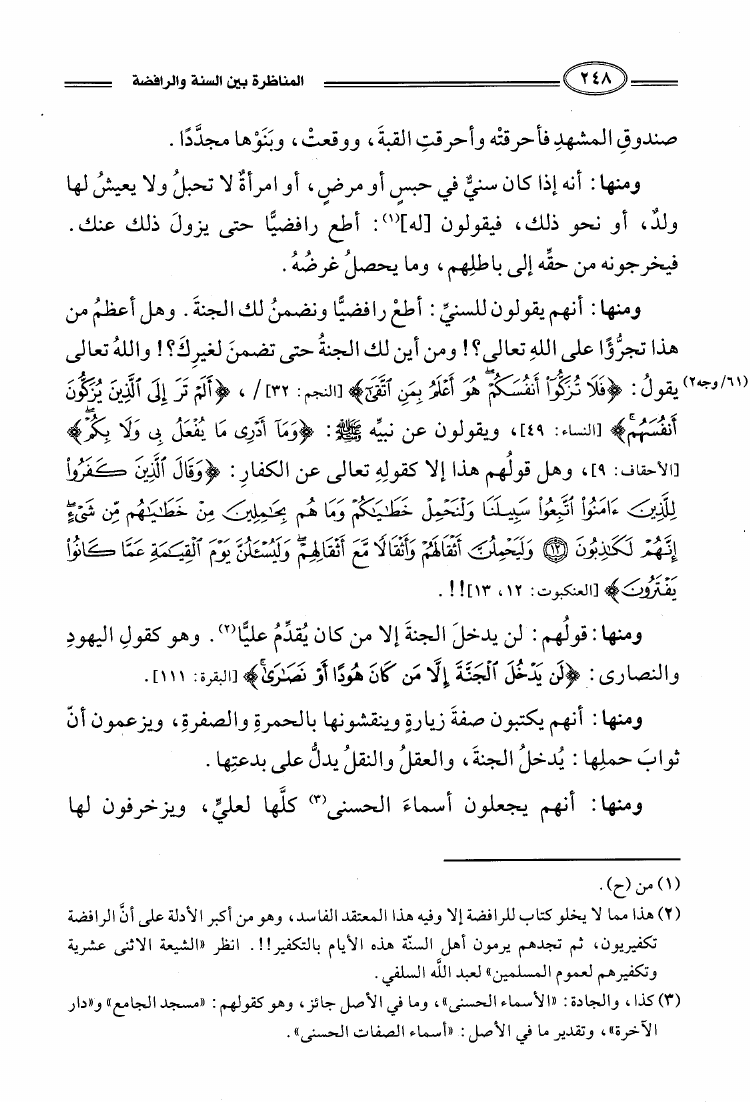 ٢٤٨ المناظرة بين السنة والرافضة
صندوقِ المشهدِ فأحرقتْه وأحرقتِ القبةَ، ووقعتْ، وبَنَوْها مجدَّدًا.
ومنها: أنه إذا كان سنيٌّ في حبسٍ أو مرضٍ، أو امرأةٌ لا تحبلُ ولا يعيشُ لها
ولدٌ، أو نحو ذلك، فيقولون [له](١): أطع رافضيًّا حتى يزولَ ذلك عنك.
فيخرجونه من حقِّه إلى باطلِهم، وما يحصلُ غرضُهُ.
ومنها: أنهم يقولون للسنيِّ: أطعْ رافضيًّا ونضمنُ لك الجنةَ. وهل أعظمُ من
هذا تجرُّؤًا على اللهِ تعالى؟! ومن أين لك الجنةُ حتى تضمنَ لغيرِكَ؟! واللهُ تعالى
يقولُ: ﴿فَلَا تُزَكُّوٓا۟ أَنفُسَكُمْ ۖ هُوَ أَعْلَمُ بِمَنِ ٱتَّقَىٰٓ﴾ [النجم: ٣٢]/، ﴿أَلَمْ تَرَ إِلَى ٱلَّذِينَ يُزَكُّونَ (٦١/وجه٢)
أَنفُسَهُم ۚ﴾ [النساء: ٤٩]، ويقولون عن نبيِّه ﷺ: ﴿وَمَآ أَدْرِى مَا يُفْعَلُ بِى وَلَا بِكُمْ ۖ﴾
[الأحقاف: ٩]، وهل قولُهم هذا إلا كقولِهِ تعالى عن الكفارِ: ﴿وَقَالَ ٱلَّذِينَ كَفَرُوا۟
لِلَّذِينَ ءَامَنُوا۟ ٱتَّبِعُوا۟ سَبِيلَنَا وَلْنَحْمِلْ خَطَٰيَٰكُمْ وَمَا هُم بِحَٰمِلِينَ مِنْ خَطَٰيَٰهُم مِّن شَىْءٍ ۖ
إِنَّهُمْ لَكَٰذِبُونَ ۝١٢ وَلَيَحْمِلُنَّ أَثْقَالَهُمْ وَأَثْقَالًا مَّعَ أَثْقَالِهِمْ ۖ وَلَيُسْـَٔلُنَّ يَوْمَ ٱلْقِيَٰمَةِ عَمَّا كَانُوا۟
يَفْتَرُونَ﴾ [العنكبوت: ١٢، ١٣]!!.
ومنها: قولُهم: لن يدخلَ الجنةَ إلا من كان يُقدِّمُ عليًّا(٢). وهو كقولِ اليهودِ
والنصارى: ﴿لَن يَدْخُلَ ٱلْجَنَّةَ إِلَّا مَن كَانَ هُودًا أَوْ نَصَٰرَىٰ ۗ﴾ [البقرة: ١١١].
ومنها: أنهم يكتبون صفةَ زيارةٍ وينقشونها بالحمرةِ والصفرةِ، ويزعمون أنّ
ثوابَ حملِها: يُدخلُ الجنةَ، والعقلُ والنقلُ يدلُّ على بدعتِها.
ومنها: أنهم يجعلون أسماءَ الحسنى(٣) كلَّها لعليٍّ، ويزخرفون لها
(١) من (ح).
(٢) هذا مما لا يخلو كتاب للرافضة إلا وفيه هذا المعتقد الفاسد، وهو من أكبر الأدلة على أنَّ الرافضة
تكفيريون، ثم تجدهم يرمون أهل السنّة هذه الأيام بالتكفير!!. انظر «الشيعة الاثنى عشرية
وتكفيرهم لعموم المسلمين» لعبد اللَّه السلفي.
(٣) كذا، والجادة: «الأسماء الحسنى»، وما في الأصل جائز، وهو كقولهم: «مسجد الجامع» و«دار
الآخرة»، وتقدير ما في الأصل: «أسماء الصفات الحسنى».